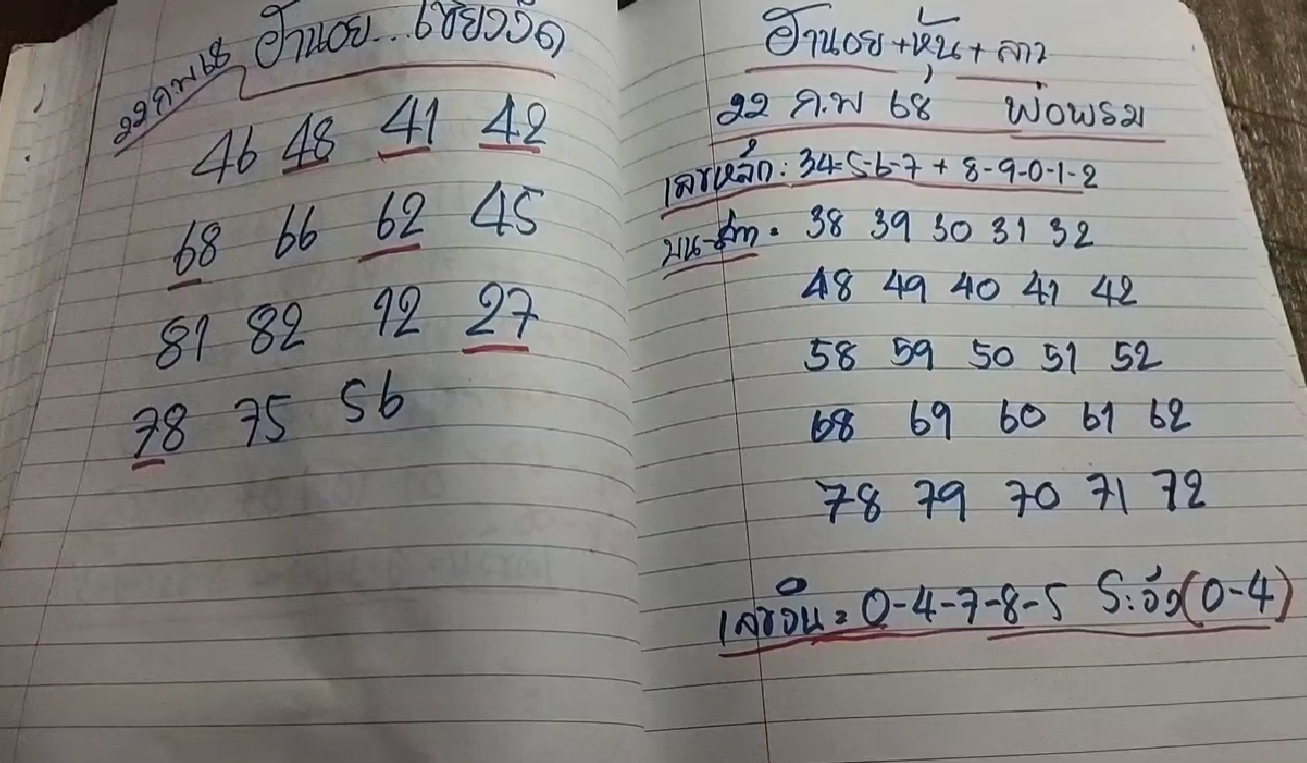 22 ก.พ 68 ฮานอย...เขียงวัด
46 48 41 42
68 66 62 45
81 82 12 27
78 75 56
ฮานอย+หุ้น+ลาว
22 ก.พ 68 พ่อพรม
เลขหลัก: 34-5-6-7 + 8-9-0-1-2
38 39 30 31 32
48 49 40 41 42
58 59 50 51 52
68 69 60 61 62
78 79 70 71 72
0-4-7-8-5 (0-4)